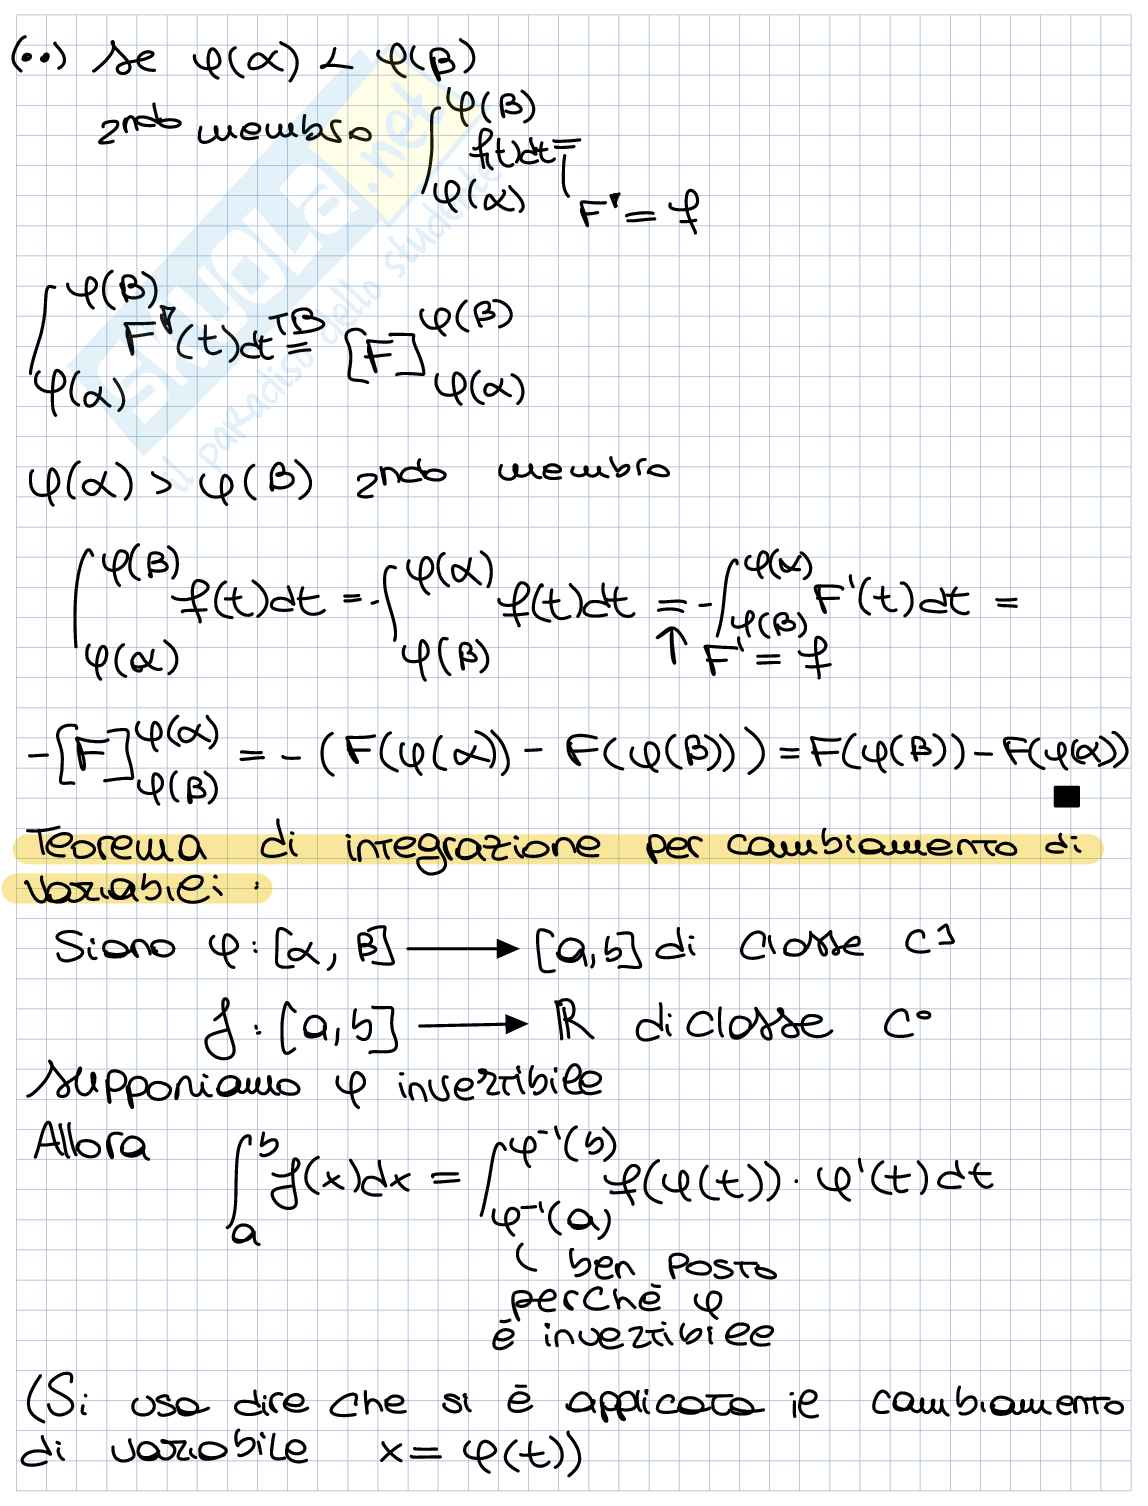 (••) se φ(α) < φ(β)
2ndo membro ∫_{φ(α)}^{φ(β)} f(t)dt =
F' = f
∫_{φ(α)}^{φ(β)} F'(t)dt TB= [F]_{φ(α)}^{φ(β)}
φ(α) > φ(β) 2ndo membro
∫_{φ(α)}^{φ(β)} f(t)dt = -∫_{φ(β)}^{φ(α)} f(t)dt = -∫_{φ(β)}^{φ(α)} F'(t)dt =
↑ F' = f
-[F]_{φ(β)}^{φ(α)} = -(F(φ(α)) - F(φ(β))) = F(φ(β)) - F(φ(α))
■
Teorema di integrazione per cambiamento di
variabili:
Siano φ: [α, β] ⟶ [a,b] di classe C¹
f: [a,b] ⟶ ℝ di classe C⁰
supponiamo φ invertibile
Allora ∫_{a}^{b} f(x)dx = ∫_{φ⁻¹(a)}^{φ⁻¹(b)} f(φ(t)) · φ'(t) dt
ben posto
perchè φ
è invertibile
(Si usa dire che si è applicato il cambiamento
di variabile x = φ(t))
SKUOLA.net
il paradiso dello studente